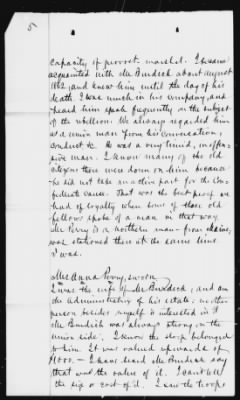 5
capacity of provost marshal. I became
acquainted with Mr Burdick about august
1862, and knew him until the day of his
death. I was much in his company, and
heard him speak frequently on the subject
of the rebellion. We always regarded him
as a union man from his conversation,
conduct &c. He was a very timid, inoffen-
sive man. I know many of the old
citizens there were down on him because
he did not take an active part for the Con-
federate cause. That was the best proof we
had of loyalty when some of those old
fellows spoke of a man in that way.
Mr Perry is a northern man - from Maine,
was stationed there at the same time
I was.
Mrs Anna Perry, sworn
I was the wife of Mr Burdick, and am
the administratrix of his estate: no other
person besides myself is interested in it
Mr Burdick was always strong on the
union side. I know the shop belonged
to him. It was valued upwards of
$1000. - I have heard Mr Burdick say
that was the value of it. I can't tell
the size or cost of it. I saw the troops